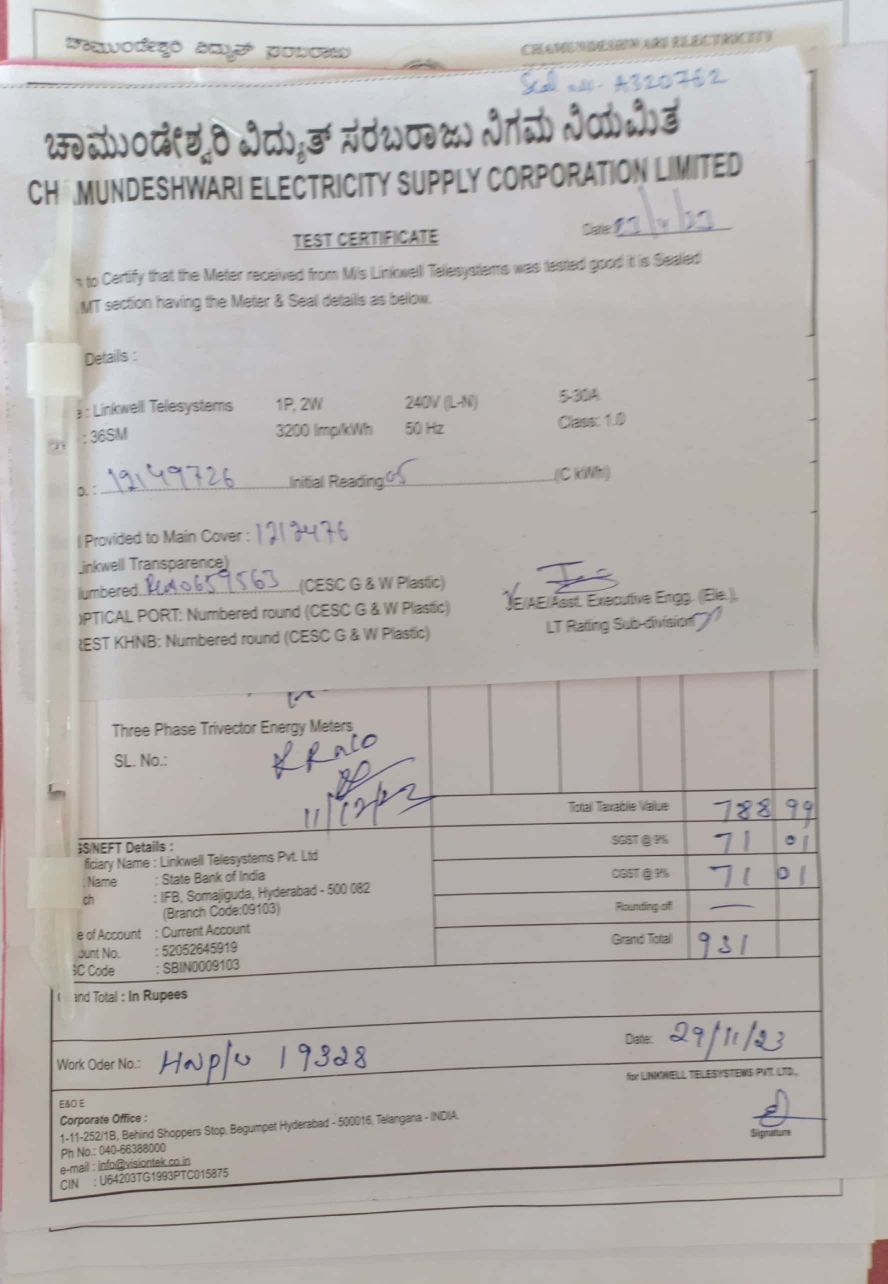 ಚಾಮುಂಡೇಶ್ವರಿ ವಿದ್ಯುತ್ ಸರಬರಾಜು
CHAMUNDESHWARI ELECTRICITY
A320762
ಚಾಮುಂಡೇಶ್ವರಿ ವಿದ್ಯುತ್ ಸರಬರಾಜು ನಿಗಮ ನಿಯಮಿತ
CH MUNDESHWARI ELECTRICITY SUPPLY CORPORATION LIMITED
TEST CERTIFICATE
Date
to Certify that the Meter received from M/s Linkwell Telesystems was tested good it is Sealed
MT section having the Meter & Seal details as below.
Details :
: Linkwell Telesystems 1P, 2W 240V (L-N) 5-30A
: 36SM 3200 Imp/kWh 50 Hz Class: 1.0
o. : 12149726 Initial Reading 05 (C kWh)
Provided to Main Cover : 1212476
inkwell Transparence)
umbered 0659563 (CESC G & W Plastic)
OPTICAL PORT: Numbered round (CESC G & W Plastic)
REST KHNB: Numbered round (CESC G & W Plastic)
JE/AE/Asst. Executive Engg. (Ele.),
LT Rating Sub-division
Three Phase Trivector Energy Meters
SL. No.:
11/12/23
Total Taxable Value 788 99
SGST @ 9% 71 01
CGST @ 9% 71 01
Rounding off —
Grand Total 931
GS/NEFT Details :
ficiary Name : Linkwell Telesystems Pvt. Ltd
Name : State Bank of India
ch : IFB, Somajiguda, Hyderabad - 500 082
(Branch Code:09103)
e of Account : Current Account
ount No. : 52052645919
SC Code : SBIN0009103
and Total : In Rupees
Work Oder No.: HNP/U 19328
Date: 29/11/23
for LINKWELL TELESYSTEMS PVT. LTD.,
Signature
E&O E
Corporate Office :
1-11-252/1B, Behind Shoppers Stop, Begumpet Hyderabad - 500016, Telangana - INDIA.
Ph No.: 040-66388000
e-mail : info@visiontek.co.in
CIN : U64203TG1993PTC015875